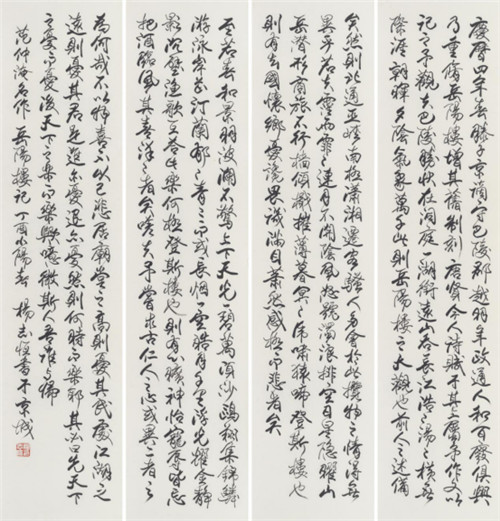 慶曆四年春滕子京謫守巴陵郡越明年政通人和百廢俱興
乃重修岳陽樓增其舊制刻唐賢今人詩賦於其上屬予作文以
記之予觀夫巴陵勝狀在洞庭一湖銜遠山吞長江浩浩湯湯橫無
際涯朝暉夕陰氣象萬千此則岳陽樓之大觀也前人之述備
矣然則北通巫峽南極瀟湘遷客騷人多會於此攬物之情得無
異乎若夫霪雨霏霏連月不開陰風怒號濁浪排空日星隱曜山
岳潛形商旅不行檣傾楫摧薄暮冥冥虎嘯猿啼登斯樓也
則有去國懷鄉憂讒畏譏滿目蕭然感極而悲者矣
至若春和景明波瀾不驚上下天光碧萬頃沙鷗翔集錦鱗
游泳岸芷汀蘭郁郁青青而或長煙一空皓月千里浮光耀金靜
影沉璧漁歌互答此樂何極登斯樓也則有心曠神怡寵辱皆忘
把酒臨風其喜洋洋者矣嗟夫予嘗求古仁人之心或異二者之
為何哉不以物喜不以己悲居廟堂之高則憂其民處江湖之
遠則憂其君是進亦憂退亦憂然則何時而樂耶其必曰先天下
之憂而憂後天下之樂而樂歟噫微斯人吾誰與歸
范仲淹名作岳陽樓記丁酉小陽春楊志恆書於京城